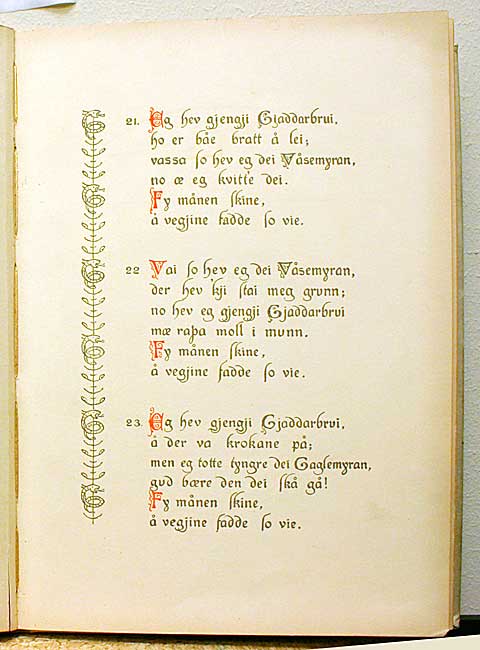 21. Eg hev gjengji Gjaddarbrui,
ho er båe bratt å lei;
vassa so hev eg dei Våsemyran,
no æ eg kvitte dei.
Fy månen skine,
å vegjine fadde so vie.
22 Vai so hev eg dei Våsemyran,
der hev 'kji stai meg grunn;
no hev eg gjengji Gjaddarbrui
mæ raþa moll i munn.
Fy månen skine,
å vegjine fadde so vie.
23. Eg hev gjengji Gjaddarbrui,
å der va krokane på;
men eg totte tyngre dei Gaglemyran,
gud bære den dei skå gå!
Fy månen skine,
å vegjine fadde so vie.